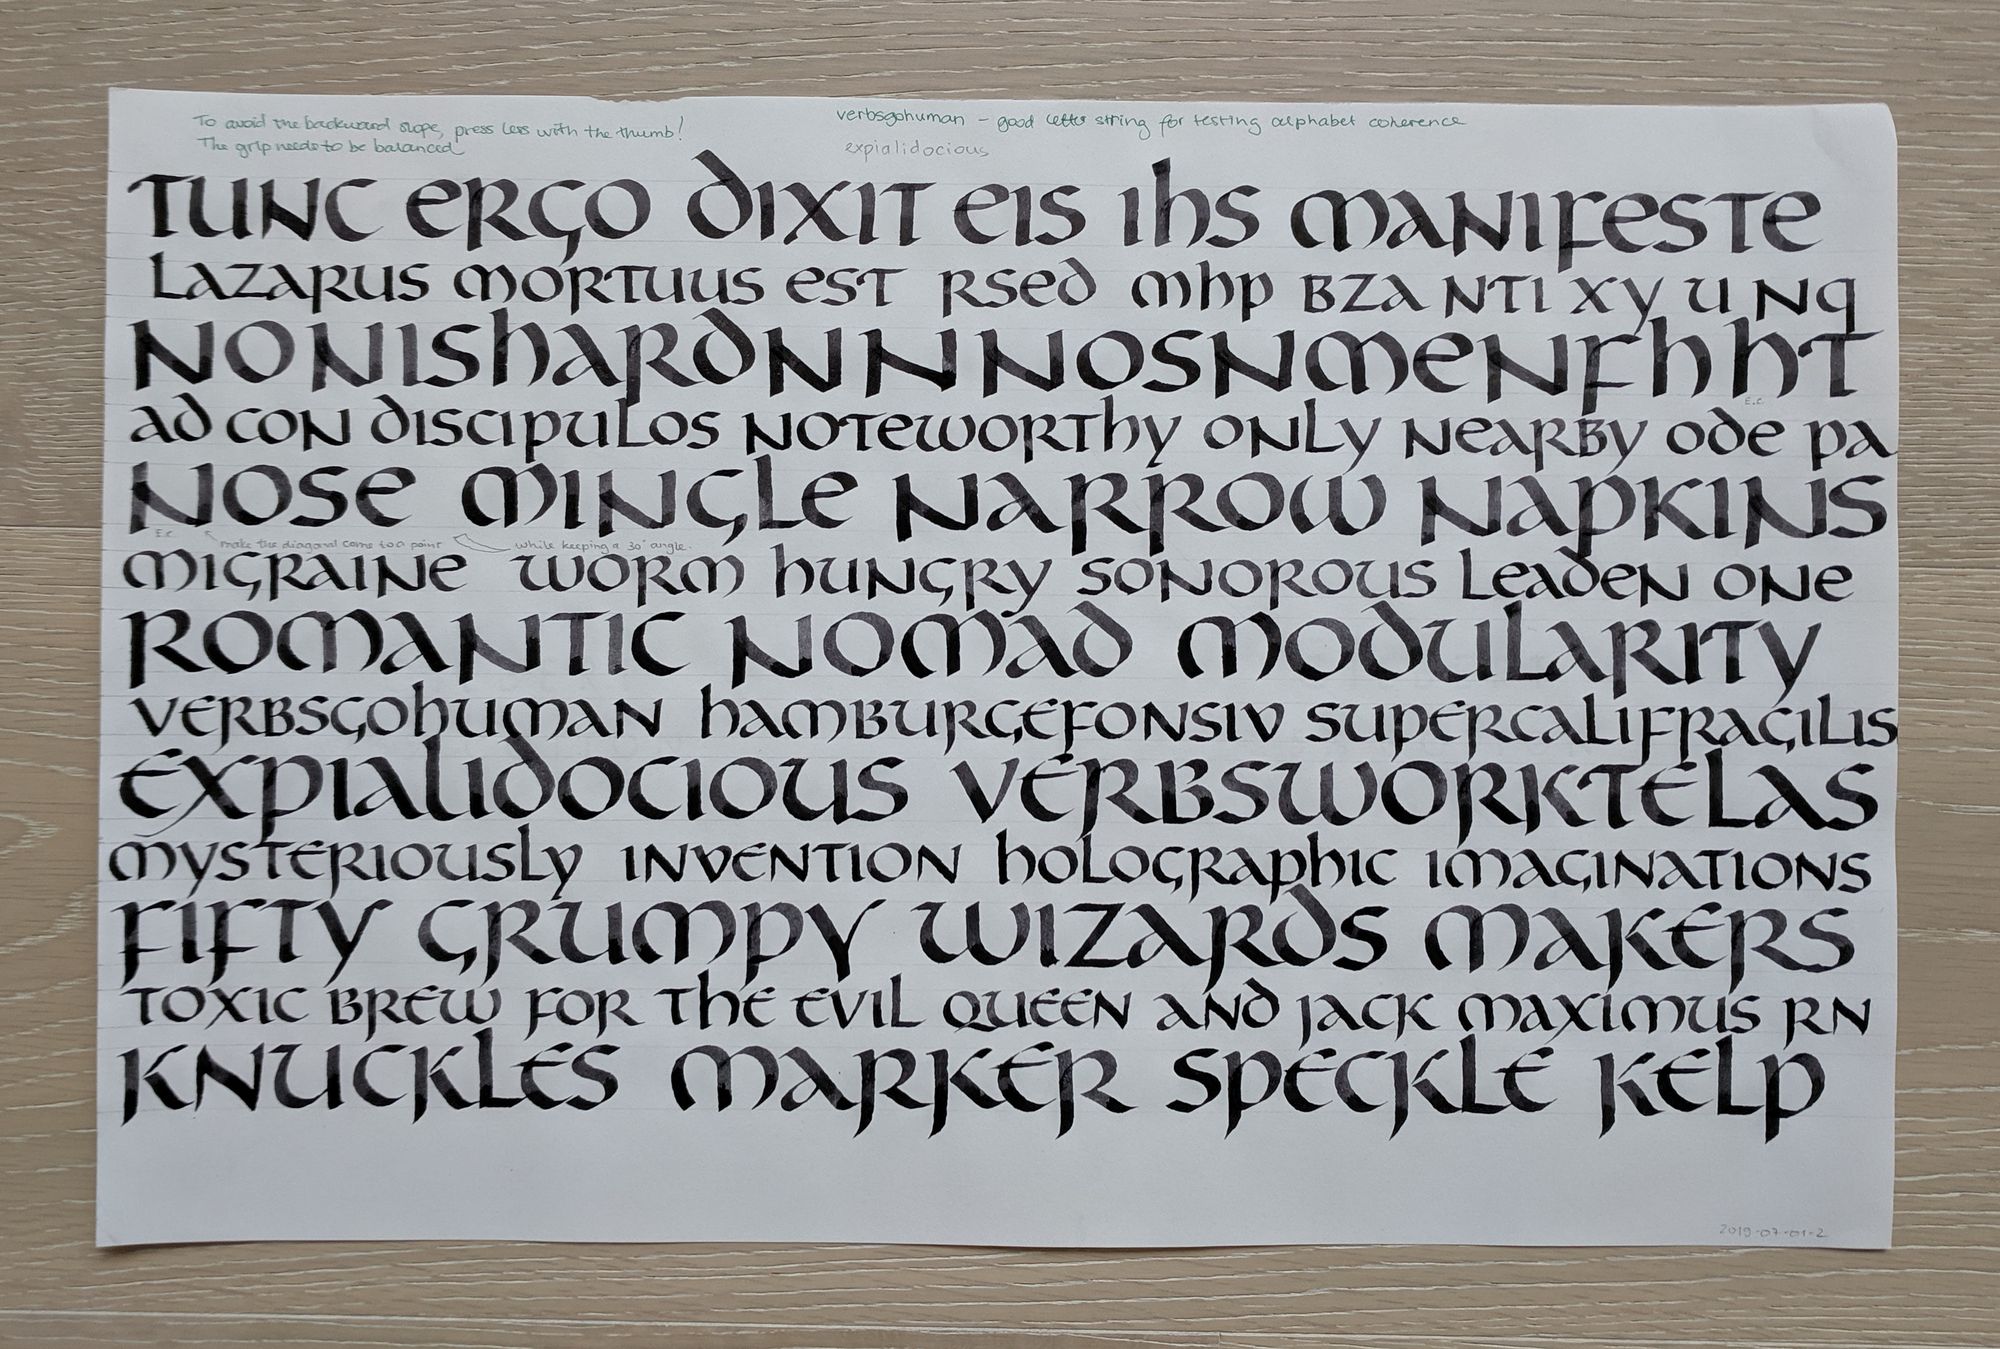 To avoid the backward slope, press less with the thumb!
The grip needs to be balanced
verbsgohuman – good letter string for testing alphabet coherence
expialidocious
TUNC ERGO DIXIT EIS IHS MANIFESTE
LAZARUS MORTUUS EST RSED MHP BZA NTI XY U NQ
NONISHARDNNNNOSNMENFHHT
E.C.
AD CON DISCIPULOS NOTEWORTHY ONLY NEARBY ODE PA
NOSE MINGLE NARROW NAPKINS
E.C. make the diagonal come to a point while keeping a 30° angle.
MIGRAINE WORM HUNGRY SONOROUS LEADEN ONE
ROMANTIC NOMAD MODULARITY
VERBSGOHUMAN HAMBURGEFONSIV SUPERCALIFRAGILIS
EXPIALIDOCIOUS VERBSWORKTELAS
MYSTERIOUSLY INVENTION HOLOGRAPHIC IMAGINATIONS
FIFTY GRUMPY WIZARDS MAKERS
TOXIC BREW FOR THE EVIL QUEEN AND JACK MAXIMUS RN
KNUCKLES MARKER SPECKLE KELP
2019-07-01-2